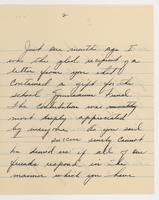 2
Just one month ago I
was the glad recipient of a
letter from you that
contained a gift for the
school Equipment Fund.
The contribution was most
most deeply appreciated
by everyone. As you said
success surely cannot
be denied us if all of our
friends respond in the
manner which you have